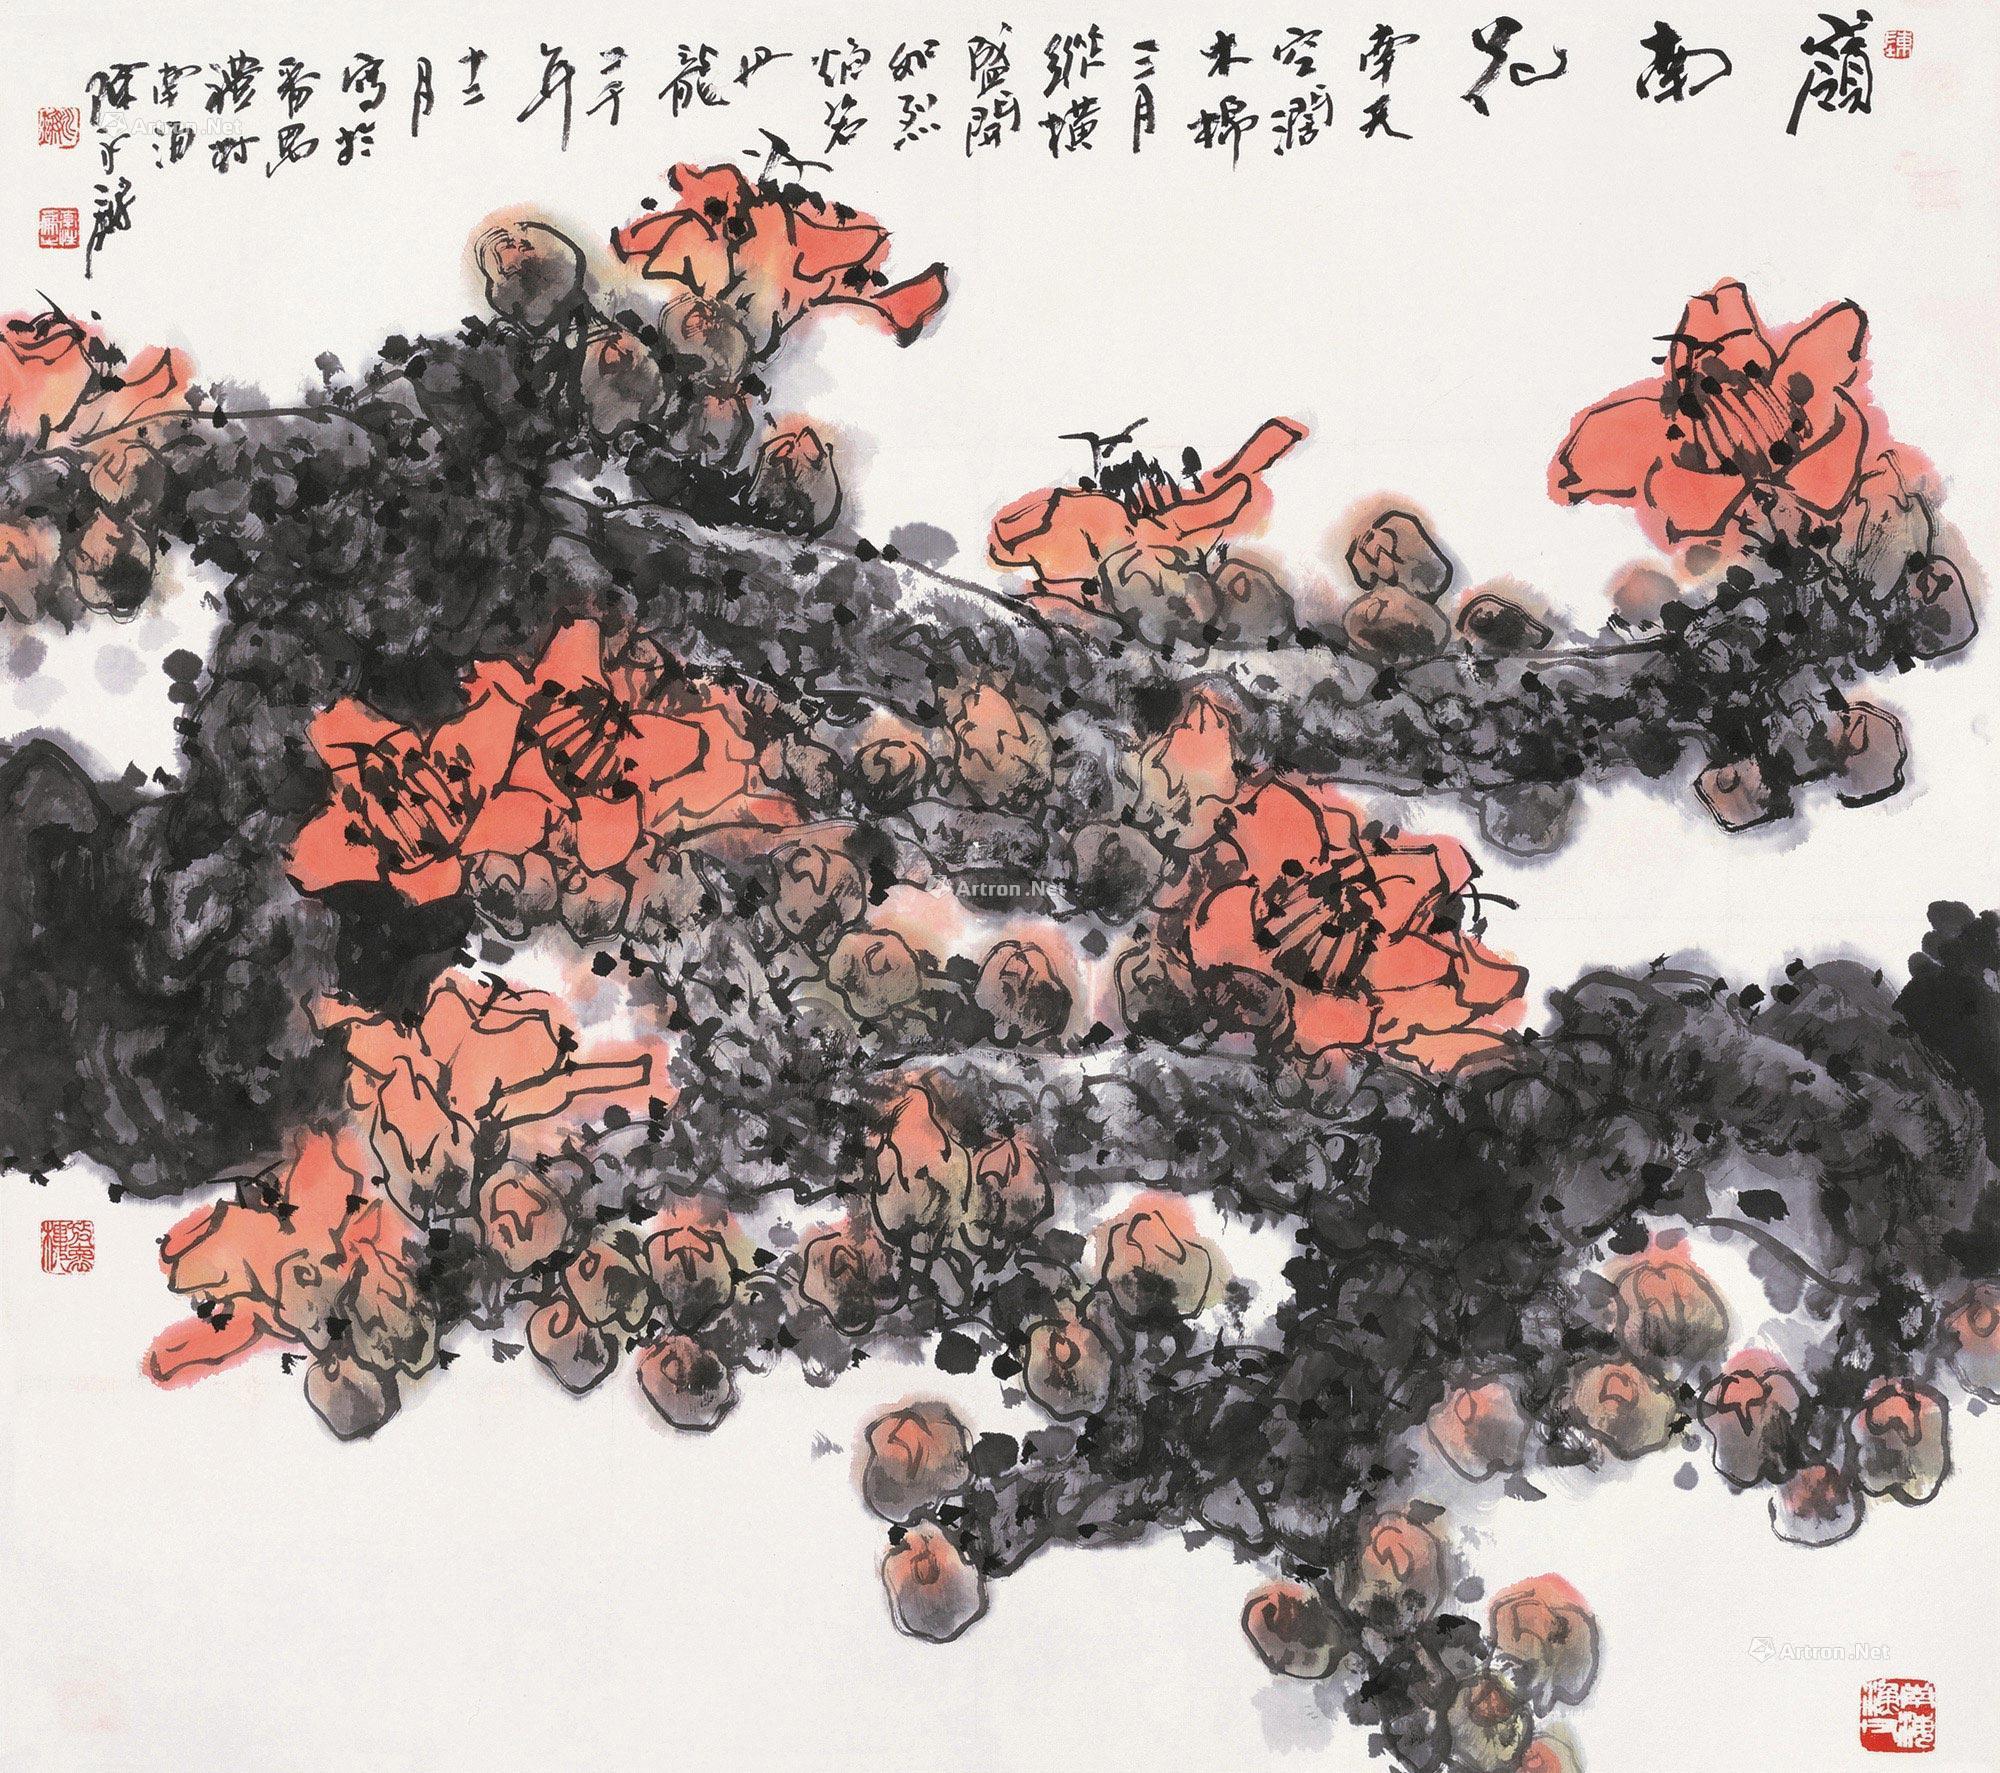 嶺南花
南天
空濶
木棉
三月
縱橫
盛開
如烈
焰若
丹
龍
二千
年
十二
月
寫於
番禺
禮村
南浦
陳永鏘
Artron.Net
Artron.Net
Artron.Net